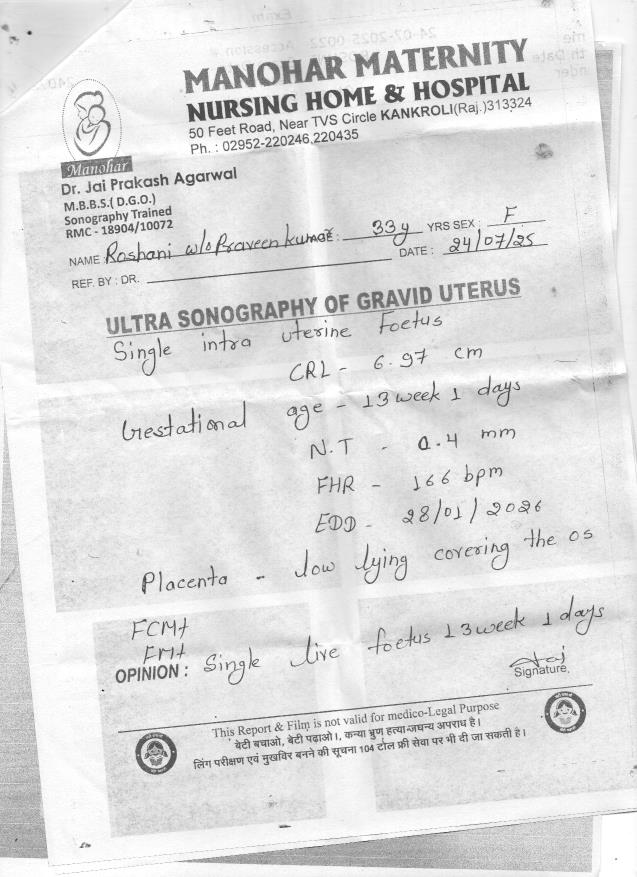 MANOHAR MATERNITY
NURSING HOME & HOSPITAL
50 Feet Road, Near TVS Circle KANKROLI(Raj.)313324
Ph. : 02952-220246,220435
Manohar
Dr. Jai Prakash Agarwal
M.B.B.S.( D.G.O.)
Sonography Trained
RMC - 18904/10072
NAME : Roshani w/o Praveen kumar : 33y YRS SEX : F
REF. BY : DR. DATE : 24/07/25
ULTRA SONOGRAPHY OF GRAVID UTERUS
Single intra uterine Foetus
CRL - 6.97 cm
Gestational age - 13 week 1 days
N.T - 0.4 mm
FHR - 166 bpm
EDD - 28/01/2026
Placenta - low lying covering the os
FCM+
FM+
OPINION : Single live foetus 13 week 1 days
Signature,
This Report & Film is not valid for medico-Legal Purpose
बेटी बचाओ, बेटी पढ़ाओ।, कन्या भ्रूण हत्या-जघन्य अपराध है।
लिंग परीक्षण एवं मुखविर बनने की सूचना 104 टोल फ्री सेवा पर भी दी जा सकती है।